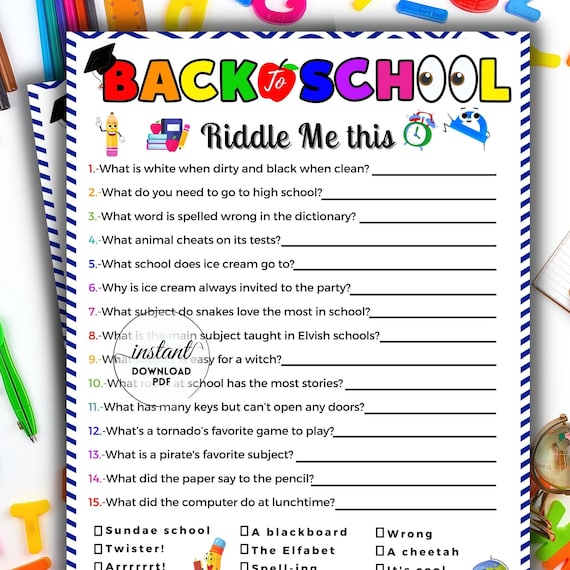 BACK To SCHOOL
Riddle Me this
1.-What is white when dirty and black when clean?
2.-What do you need to go to high school?
3.-What word is spelled wrong in the dictionary?
4.-What animal cheats on its tests?
5.-What school does ice cream go to?
6.-Why is ice cream always invited to the party?
7.-What subject do snakes love the most in school?
8.-What is the main subject taught in Elvish schools?
9.-What easy for a witch?
10.-What at school has the most stories?
11.-What has many keys but can't open any doors?
12.-What's a tornado's favorite game to play?
13.-What is a pirate's favorite subject?
14.-What did the paper say to the pencil?
15.-What did the computer do at lunchtime?
instant
DOWNLOAD
PDF
Sundae school A blackboard Wrong
Twister! The Elfabet A cheetah
Arrrrrrt! Spell-ing It's cool